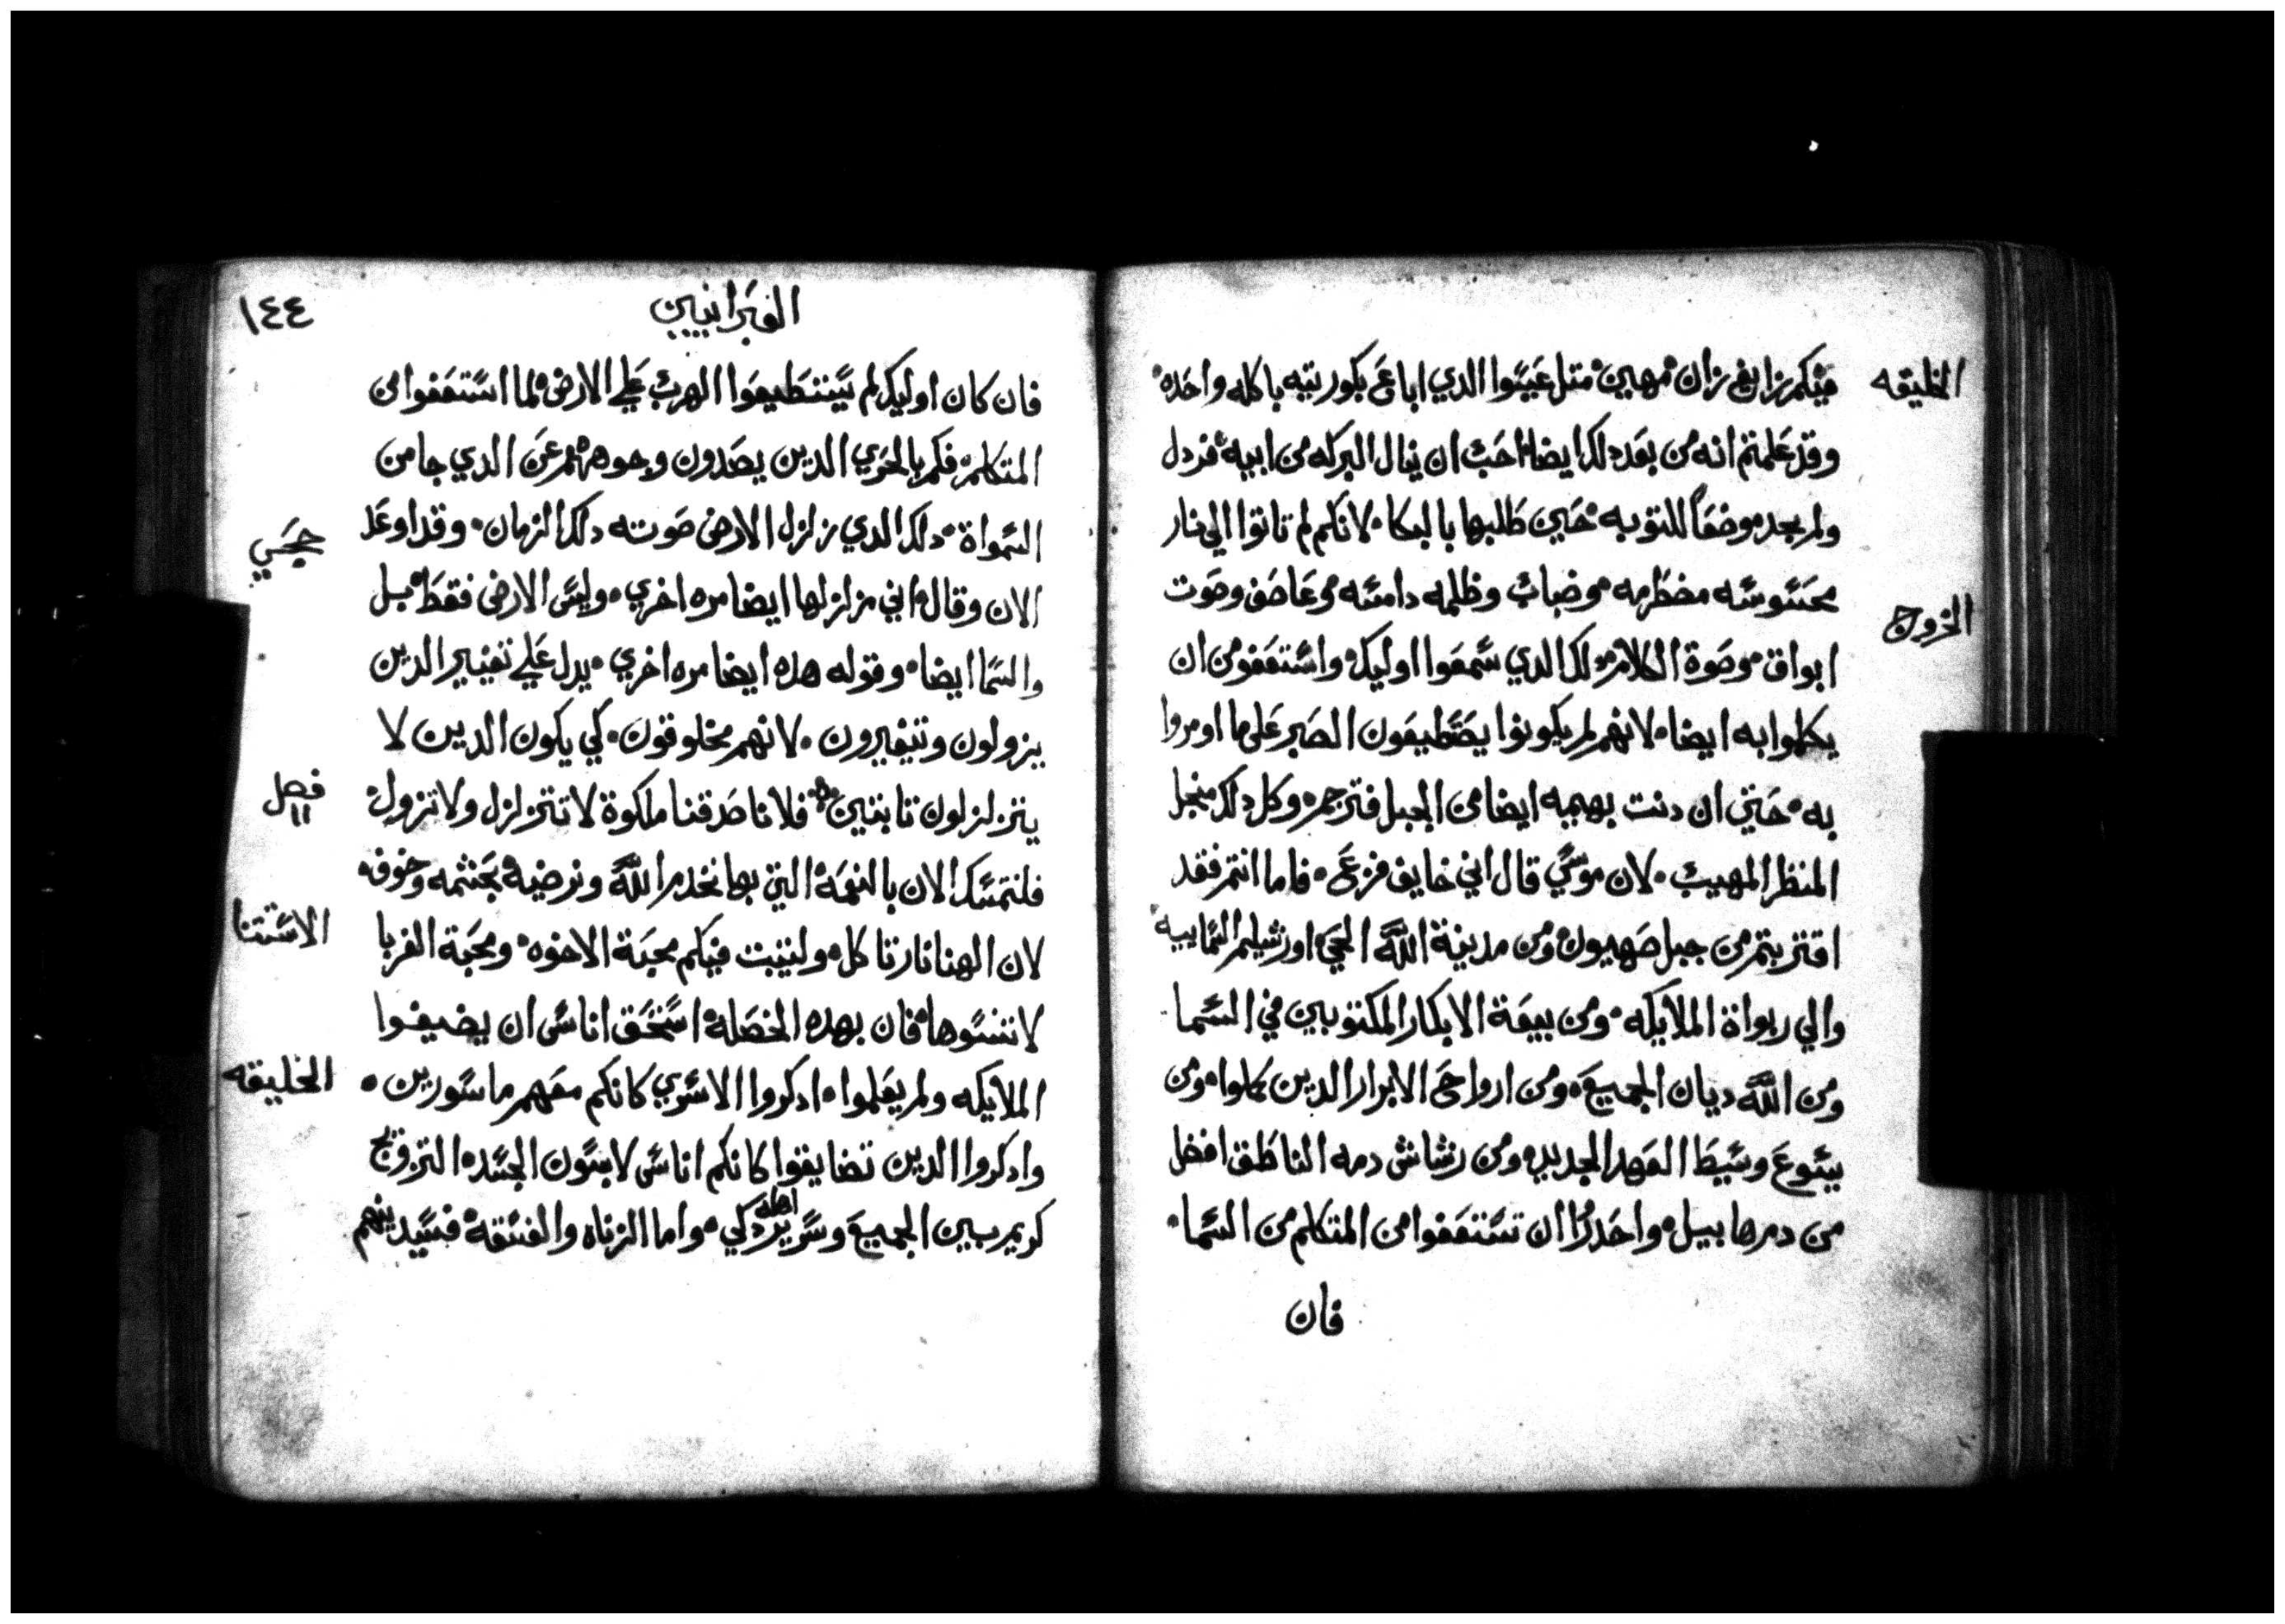 الخليقه
فيكم زايغ زان مهين متل عيسوا الدي اباع بكوريته باكله واحده
وقد علمتم انه من بعد دلك ايضا احب ان ينال البركه من ابيه فردل
ولم يجد موضعا للتوبه حين طلبها بالبكا لانكم لم تاتوا الي نار
محسوسه مضطرمه وضباب وظلمه دامسه وعاصف وصوت
الخروج
ابواق وصوة الكلام دلك الدي سمعوا اوليك واستعفو من ان
يكلموا به ايضا لانهم لم يكونوا يصتطيعون الصبر على ما اومروا
به حتي ان دنت بهيمه ايضا من الجبل فترجم وكل دلك منجل
المنظر المهيب لان موسي قال اني خايف فزع فاما انتم فقد
اقتربتم من جبل صهيون ومن مدينة الله الحي اورشليم السماييه
والي ربواة الملايكه ومن بيعة الابكار المكتوبين في السما
ومن الله ديان الجميع ومن ارواح الابرار الدين كملوا ومن
يسوع وسيط العهد الجديد ومن رشاش دمه الناطق افضل
من دم هابيل واحدروا ان تستعفوا من المتكلم من السما
فان
العبرانيين
١٤٤
فان كان اوليك لم يستطيعوا الهرب علي الارض لما استعفوا من
المتكلم فكم بالحري الدين يصدون وجوههم عن الدي جا من
السمواة دلك الدي زلزل الارض صوته دلك الزمان وقد اوعد
حجي
الان وقال اني مزلزلها ايضا مره اخري وليس الارض فقط بل
والسما ايضا وقوله هده ايضا مره اخري يدل علي تغيير الدين
يزولون وتتغيرون لانهم مخلوقون كي يكون الدين لا
يتزلزلون تابتين فلانا صدقنا ملكوة لا تتزلزل ولا تزول
فصل ١١
فلنتمسك الان بالنعمة التي بها نخدم الله ونرضيه بحشمه وخوف
لان الهنا نار تاكل ولتثبت فيكم محبة الاخوه ومحبة الغربا
الاستتنا
لا تنسوها فان بهده الخصلة استحق اناس ان يضيفوا
الملايكه ولم يعلموا ادكروا الاسري كانكم معهم ماسورين
الخليقه
وادكروا الدين تضايقوا كانكم اناس لابسون الجسد التزويج
كريم بين الجميع وسرير اهله دكي واما الزناه والفسقة فسيدينهم